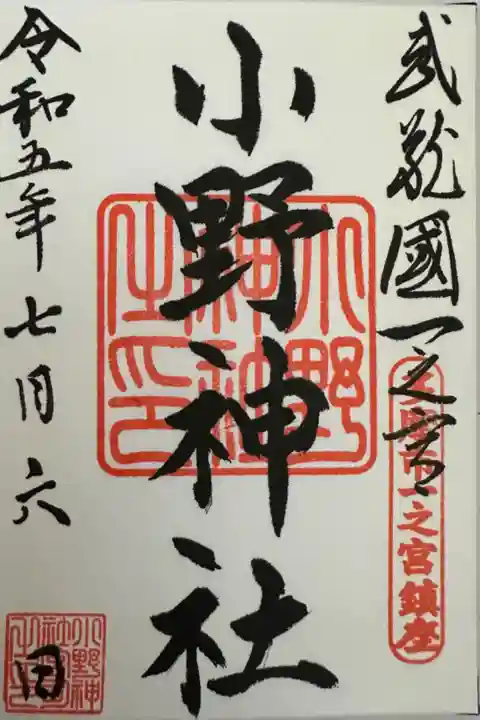 武蔵國一之宮
多摩市一之宮鎮座
小野神社
小野神社之印
令和五年七月六日
小野神社之印